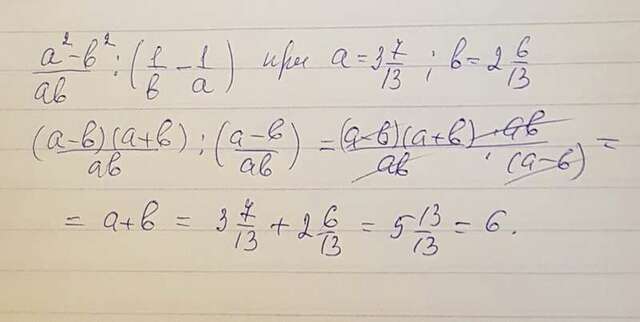 (a²-b²)/(ab) : (1/b - 1/a) при a = 3 7/13 ; b = 2 6/13
((a-b)(a+b))/(ab) : ((a-b)/(ab)) = ((a-b)(a+b))/(ab) · (ab)/((a-b)) =
= a+b = 3 7/13 + 2 6/13 = 5 13/13 = 6.